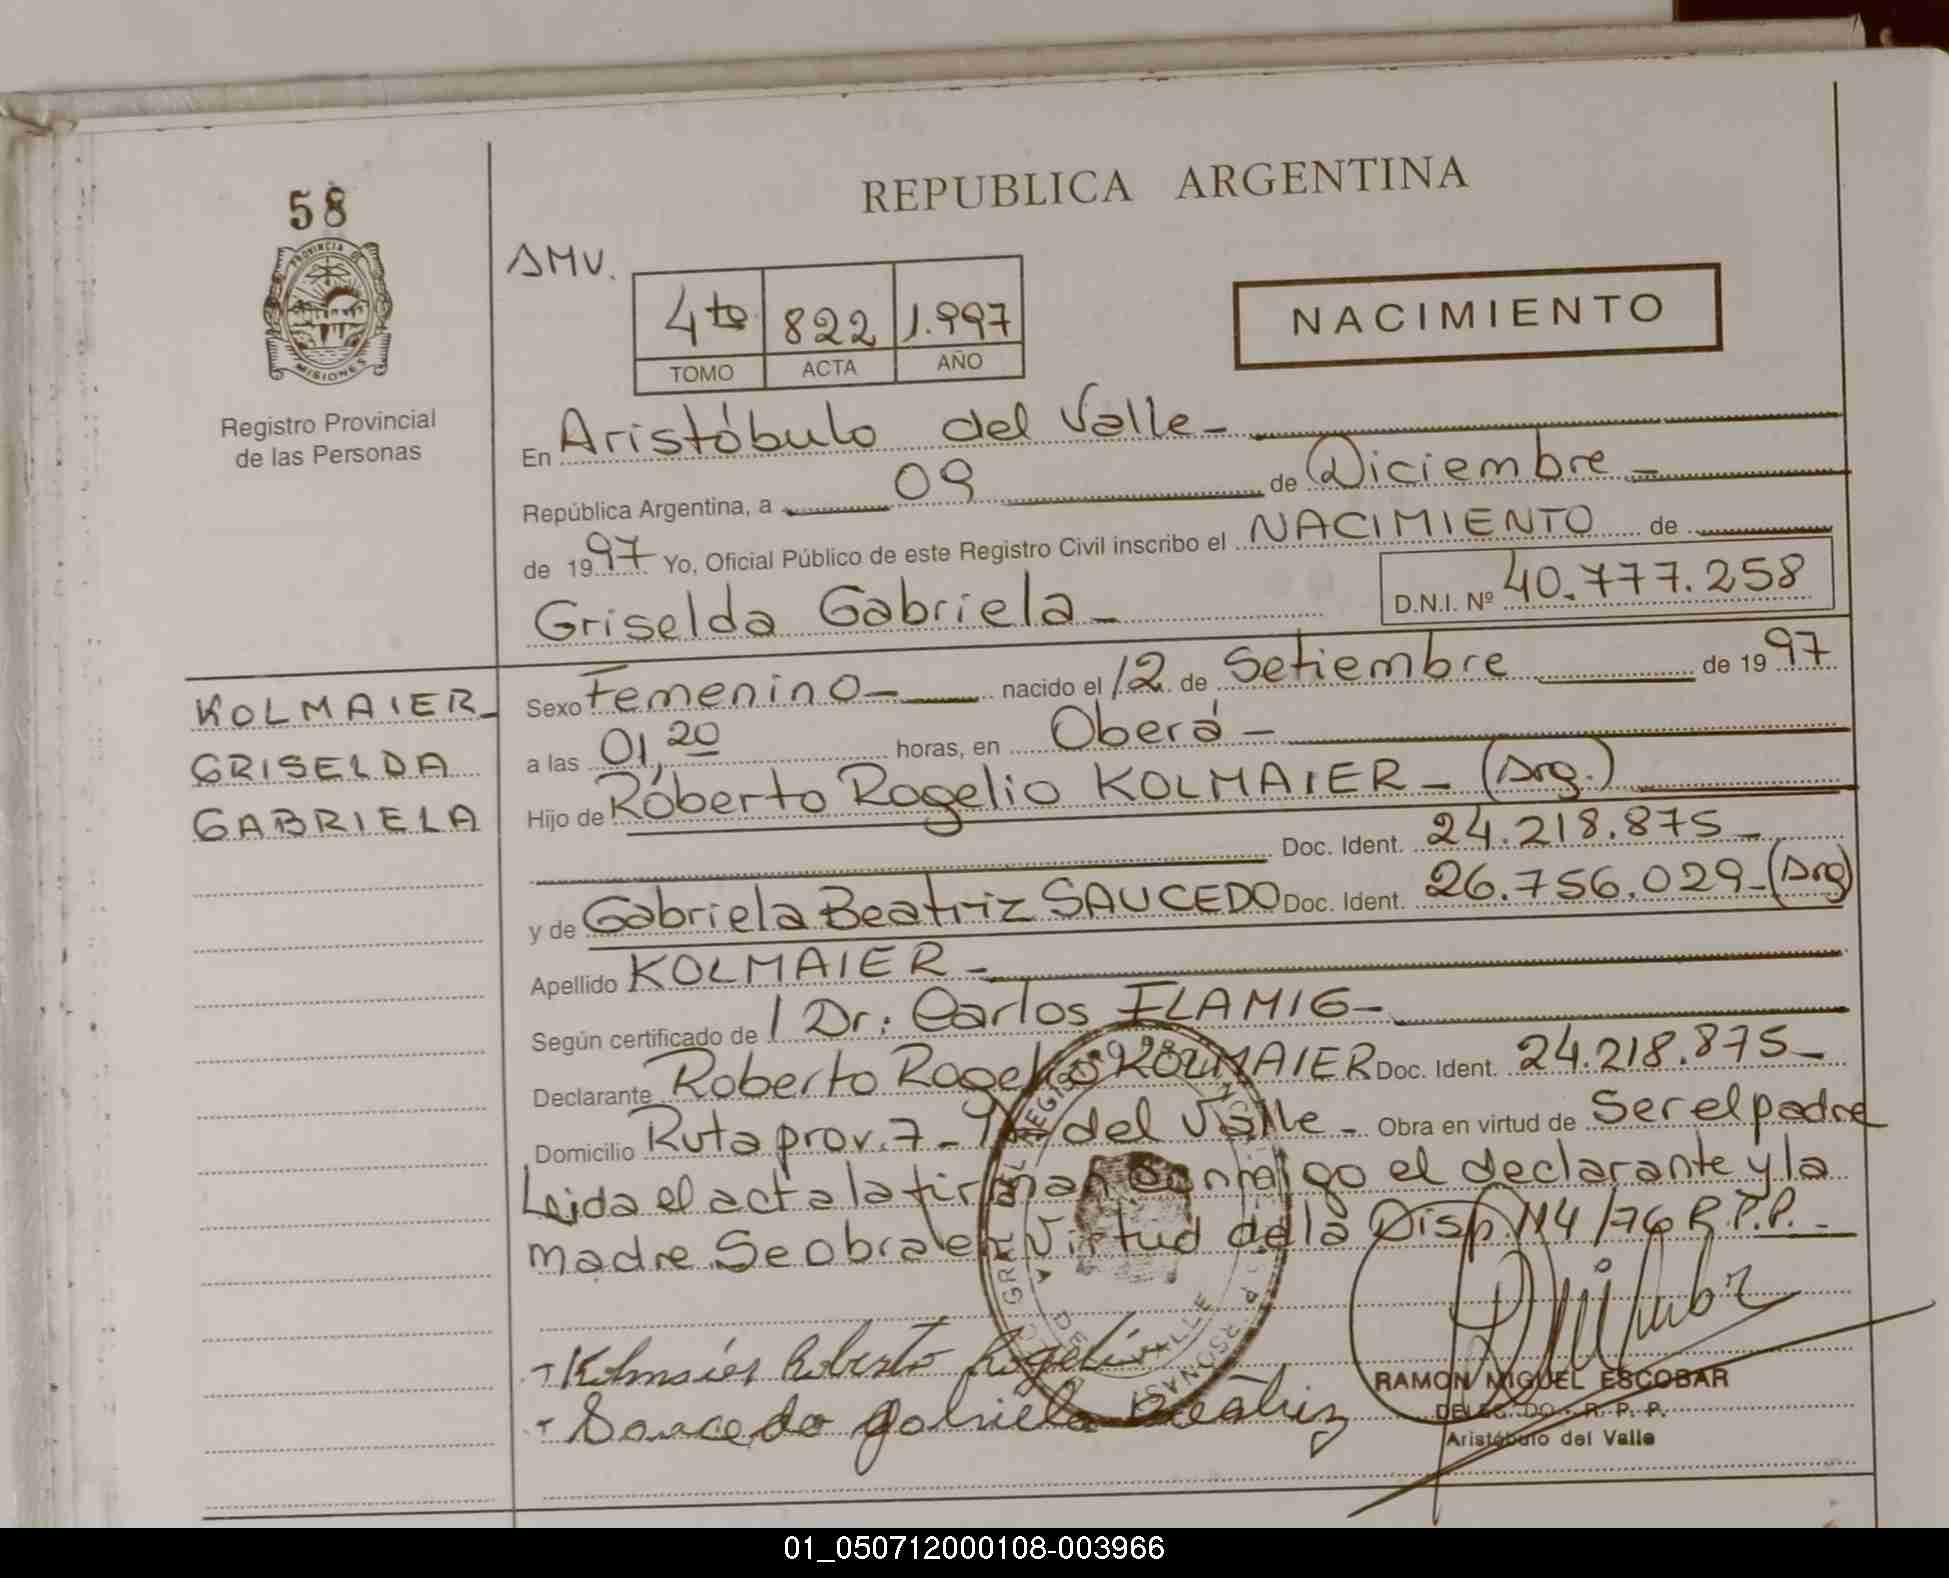 58
PROVINCIA DE
MISIONES
Registro Provincial
de las Personas
REPUBLICA ARGENTINA
AMV.
4to 822 1.997
TOMO ACTA AÑO
NACIMIENTO
En Aristóbulo del Valle-
República Argentina, a 09 de Diciembre -
de 1997 Yo, Oficial Público de este Registro Civil inscribo el NACIMIENTO de
Griselda Gabriela - D.N.I. Nº 40.777.258
KOLMAIER-
GRISELDA
GABRIELA
Sexo Femenino - nacido el 12 de Setiembre de 1997
a las 01,20 horas, en Oberá -
Hijo de Roberto Rogelio KOLMAIER - (Arg.)
Doc. Ident. 24.218.875-
y de Gabriela Beatriz SAUCEDO Doc. Ident. 26.756.029-(Arg)
Apellido KOLMAIER -
Según certificado de / Dr: Carlos FLAMIG-
Declarante Roberto Rogelio KOLMAIER Doc. Ident. 24.218.875-
Domicilio Ruta prov.7- del Valle - Obra en virtud de Ser el padre
Leida el acta la firman conmigo el declarante y la
madre. Se obra en Virtud de la Disp. 114/76 R.P.P.-
Kolmaier Roberto Rogelio
Saucedo gabriela Beatriz
RAMON MIGUEL ESCOBAR
DELEGADO - R. P. P.
Aristóbulo del Valle
01_050712000108-003966